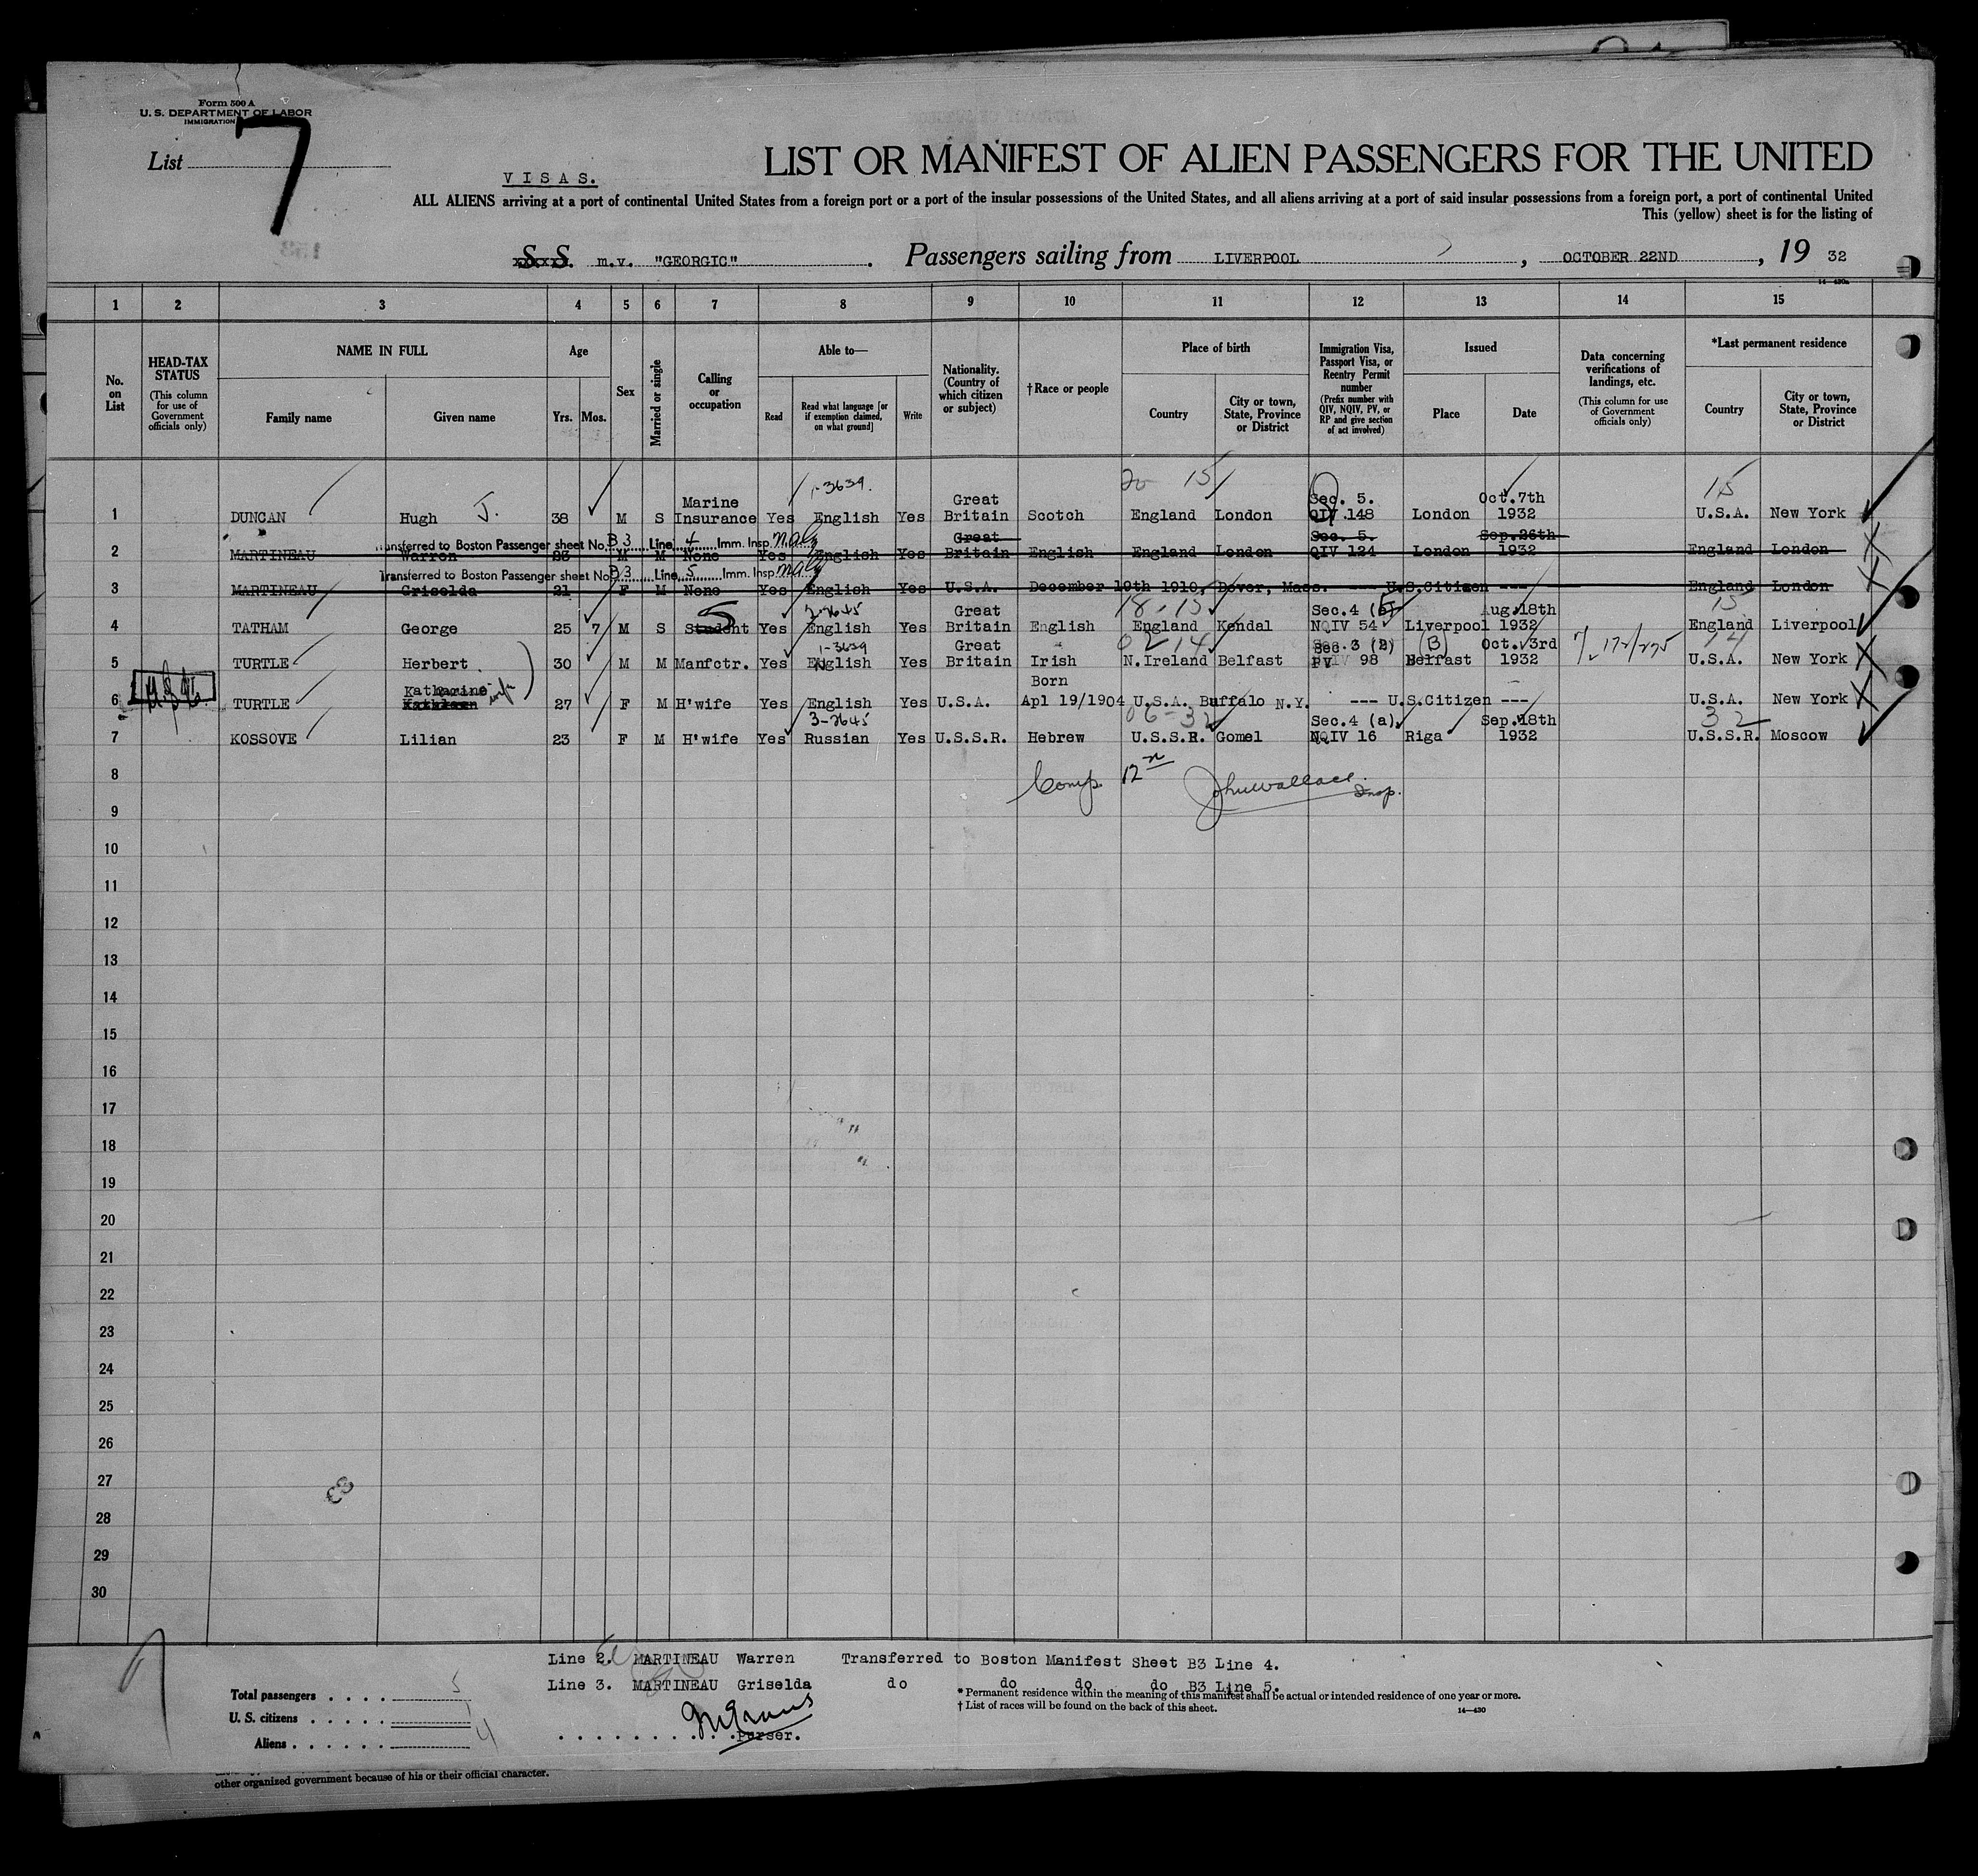 Form 500 A
U. S. DEPARTMENT OF LABOR
IMMIGRATION
List 7
VISAS.
LIST OR MANIFEST OF ALIEN PASSENGERS FOR THE UNITED
ALL ALIENS arriving at a port of continental United States from a foreign port or a port of the insular possessions of the United States, and all aliens arriving at a port of said insular possessions from a foreign port, a port of continental United
This (yellow) sheet is for the listing of
S S m.v. "GEORGIC". Passengers sailing from LIVERPOOL, OCTOBER 22ND, 19 32
1 2 3 4 5 6 7 8 9 10 11 12 13 14 15
No. on List
HEAD-TAX STATUS (This column for use of Government officials only)
NAME IN FULL Family name Given name
Age Yrs. Mos.
Sex
Married or single
Calling or occupation
Able to— Read Read what language [or if exemption claimed, on what ground] Write
Nationality. (Country of which citizen or subject)
†Race or people
Place of birth Country City or town, State, Province or District
Immigration Visa, Passport Visa, or Reentry Permit number (Prefix number with QIV, NQIV, PV, or RP and give section of act involved)
Issued Place Date
Data concerning verifications of landings, etc. (This column for use of Government officials only)
*Last permanent residence Country City or town, State, Province or District
1-3639. 20 15 15
1 DUNCAN Hugh J. 38 M S Marine Insurance Yes English Yes Great Britain Scotch England London Sec. 5. QIV 148 London Oct. 7th 1932 U.S.A. New York
Transferred to Boston Passenger sheet No. B3 Line 4 Imm. Insp.
2 MARTINEAU Warren 23 M M None Yes English Yes Great Britain English England London Sec. 5. QIV 124 London Sep. 26th 1932 England London
Transferred to Boston Passenger sheet No. B3 Line 5 Imm. Insp.
3 MARTINEAU Griselda 21 F M None Yes English Yes U.S.A. December 19th 1910, Dover, Mass. --- U.S.Citizen --- England London
2-2645 18-15 15
4 TATHAM George 25 7 M S Student Yes English Yes Great Britain English England Kendal Sec.4 (e) NQIV 54 Liverpool Aug. 18th 1932 England Liverpool
1-3639 02 14 14
5 TURTLE Herbert 30 M M Manfctr. Yes English Yes Great Britain Irish N.Ireland Belfast Sec. 3 (2) PV 98 Belfast Oct. 3rd 1932 U.S.A. New York
6 TURTLE Katharine Kathleen wife 27 F M H'wife Yes English Yes U.S.A. Born Apl 19/1904 U.S.A. Buffalo N.Y. --- U.S.Citizen --- U.S.A. New York
3-2645 06-32 32
7 KOSSOVE Lilian 23 F M H'wife Yes Russian Yes U.S.S.R. Hebrew U.S.S.R. Gomel Sec.4 (a) NQIV 16 Riga Sep. 18th 1932 U.S.S.R. Moscow
8 Comp. 12 John Wallace Insp.
9
10
11
12
13
14
15
16
17
18
19
20
21
22
23
24
25
26
27
28
29
30
Line 2. MARTINEAU Warren Transferred to Boston Manifest Sheet B3 Line 4.
Line 3. MARTINEAU Griselda do do do do B3 Line 5.
Total passengers . . . . 5
U. S. citizens . . . . . 1
Aliens . . . . . . 4
Purser.
* Permanent residence within the meaning of this manifest shall be actual or intended residence of one year or more.
† List of races will be found on the back of this sheet.
14—430
other organized government because of his or their official character.